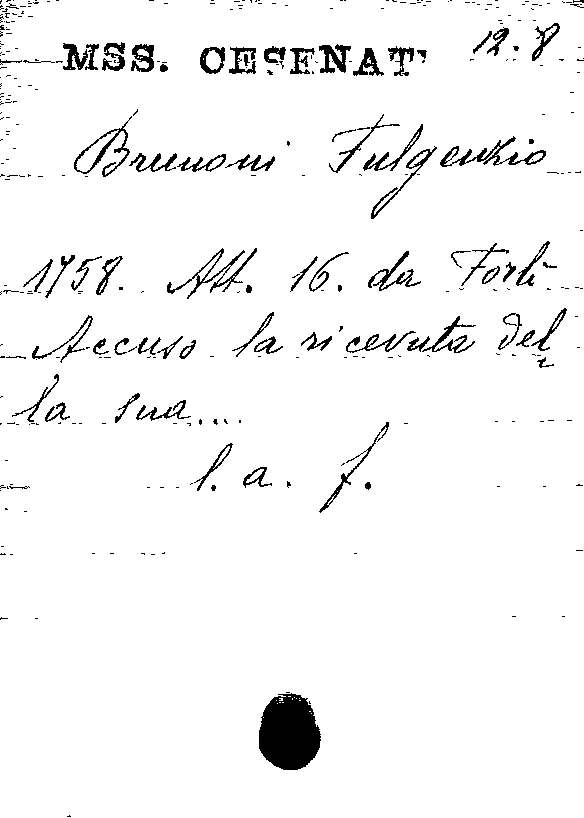 MSS. CESENAT 12.8
Brunoni Fulgenzio
1758. Ott. 16. da Forlì
Accuso la ricevuta del
la sua....
l. a. f.